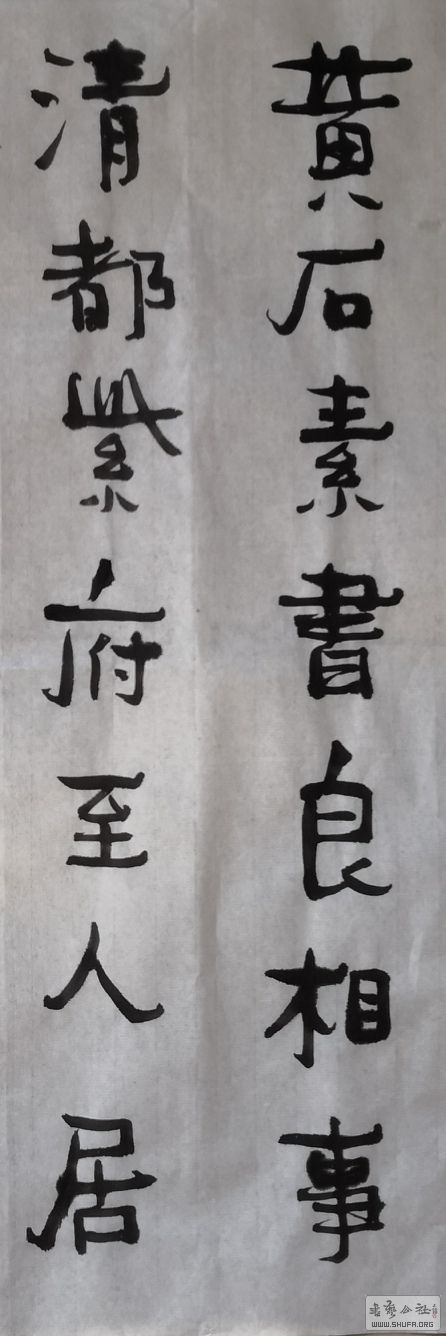 黃石素書良相事
清都紫府至人居
書藝公社
WWW.SHUFA.ORG